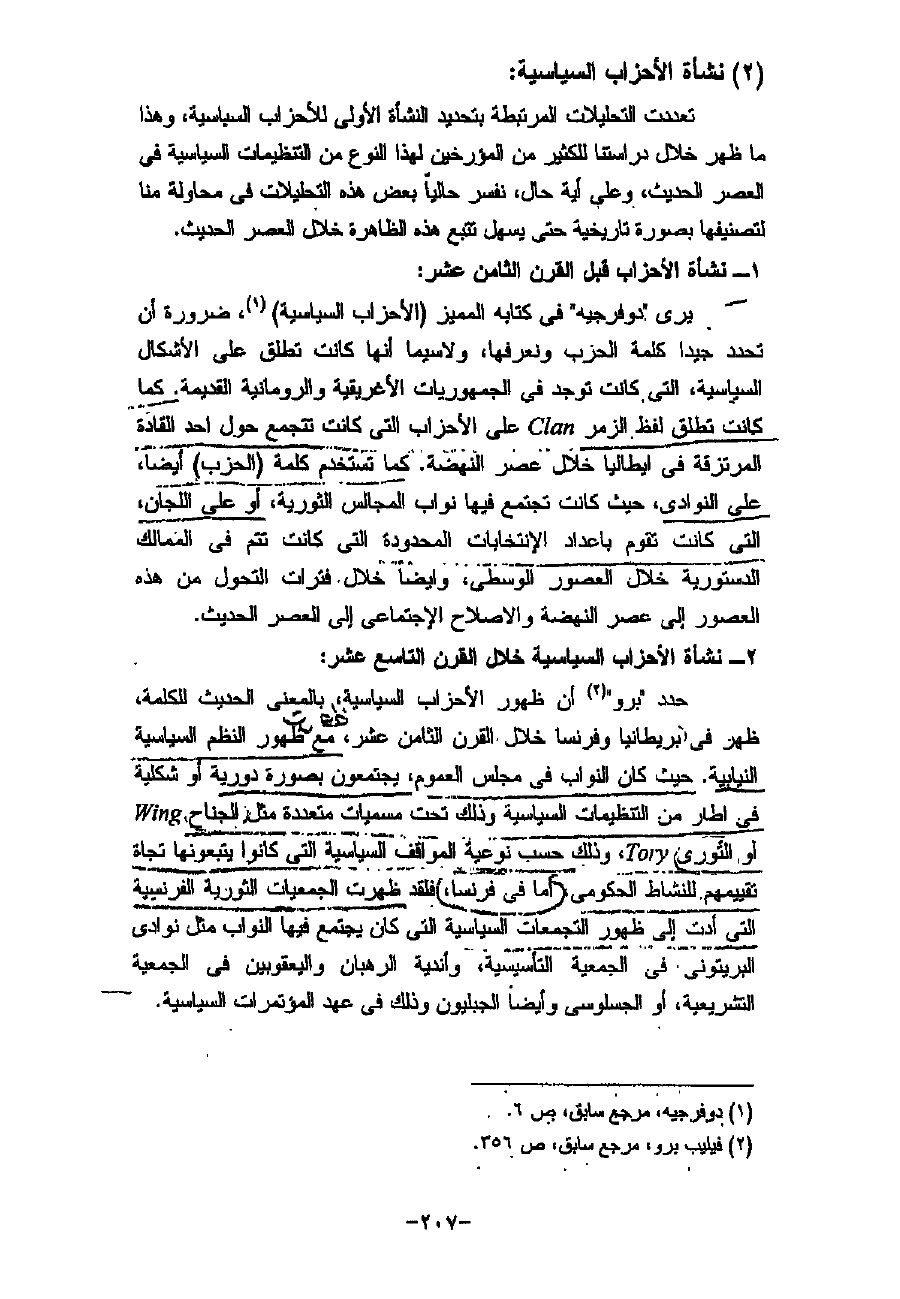 (٢) نشأة الأحزاب السياسية:
تعددت التحليلات المرتبطة بتحديد النشأة الأولى للأحزاب السياسية، وهذا
ما ظهر خلال دراستنا للكثير من المؤرخين لهذا النوع من التنظيمات السياسية فى
العصر الحديث، وعلى أية حال، نفسر حالياً بعض هذه التحليلات فى محاولة منا
لتصنيفها بصورة تاريخية حتى يسهل تتبع هذه الظاهرة خلال العصر الحديث.
١ــ نشأة الأحزاب قبل القرن الثامن عشر:
يرى "دوفرجيه" فى كتابه المميز (الأحزاب السياسية) (١)، ضرورة أن
تحدد جيدا كلمة الحزب ونعرفها، ولاسيما أنها كانت تطلق على الأشكال
السياسية، التى كانت توجد فى الجمهوريات الأغريقية والرومانية القديمة. كما
كانت تطلق لفظ الزمر Clan على الأحزاب التى كانت تتجمع حول احد القادة
المرتزقة فى ايطاليا خلال عصر النهضة. كما تستخدم كلمة (الحزب) أيضا،
على النوادى، حيث كانت تجتمع فيها نواب المجالس الثورية، أو على اللجان،
التى كانت تقوم باعداد الإنتخابات المحدودة التى كانت تتم فى الممالك
الدستورية خلال العصور الوسطى، وايضاً خلال فترات التحول من هذه
العصور إلى عصر النهضة والاصلاح الإجتماعى إلى العصر الحديث.
٢ــ نشأة الأحزاب السياسية خلال القرن التاسع عشر:
حدد "برو"(٢) أن ظهور الأحزاب السياسية، بالمعنى الحديث للكلمة،
ظهر فى بريطانيا وفرنسا خلال القرن الثامن عشر، مع ظهور النظم السياسية
النيابية. حيث كان النواب فى مجلس العموم، يجتمعون بصورة دورية أو شكلية
فى اطار من التنظيمات السياسية وذلك تحت مسميات متعددة مثل الجناح Wing،
أو التورى Tory، وذلك حسب نوعية المواقف السياسية التى كانوا يتبعونها تجاة
تقييمهم للنشاط الحكومى (أما فى فرنسا،) فلقد ظهرت الجمعيات الثورية الفرنسية
التى أدت إلى ظهور التجمعات السياسية التى كان يجتمع فيها النواب مثل نوادى
البريتونى فى الجمعية التأسيسية، وأندية الرهبان واليعقوبين فى الجمعية
التشريعية، أو الجسلوسى وأيضاً الجبليون وذلك فى عهد المؤتمرات السياسية.
(١) دوفرجيه، مرجع سابق، ص ٦.
(٢) فيليب برو، مرجع سابق، ص ٣٥٦.
-٢٠٧-